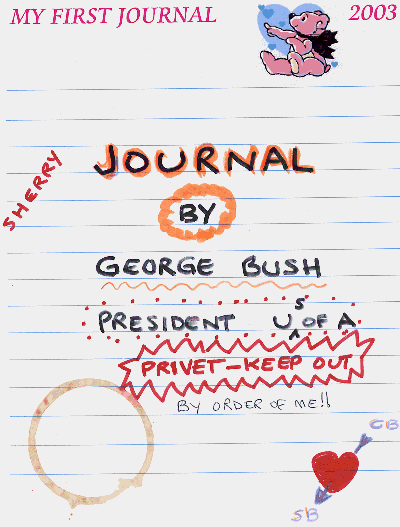 MY FIRST JOURNAL
2003
SHERRY
JOURNAL
BY
GEORGE BUSH
PRESIDENT U S OF A.
PRIVET-KEEP OUT
BY ORDER OF ME!!
GB
SB